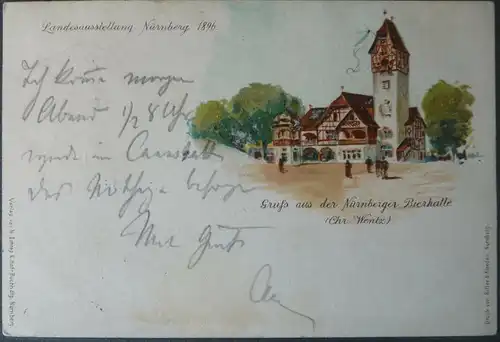 Landesausstellung Nürnberg 1896
Ich komme morgen
Abend 1/2 8 Uhr
werde in Cannstatt
das Nöthige besorgen
Mit Gruß
Gruß aus der Nürnberger Bierhalle
(Chr. Wentz)